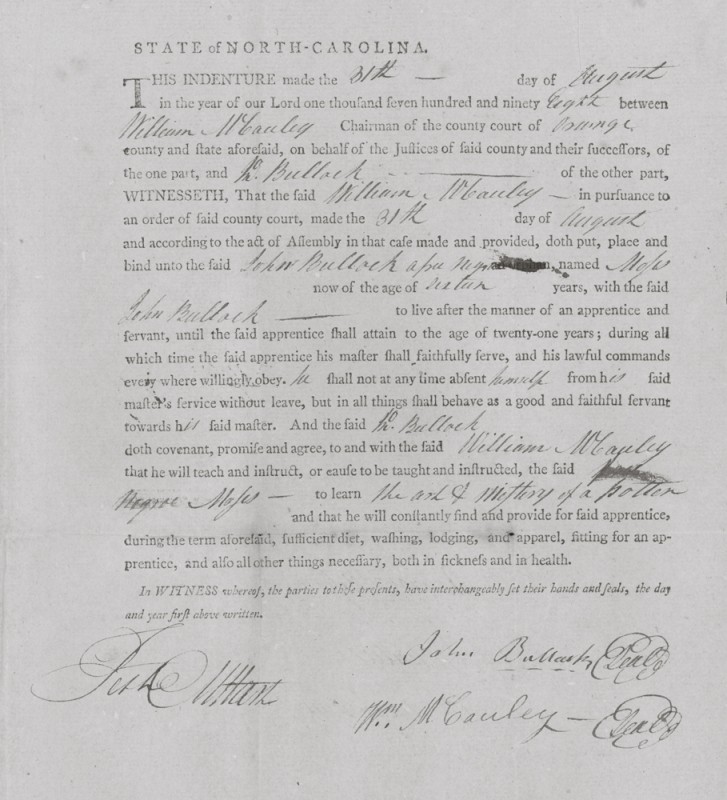 STATE of NORTH-CAROLINA.
THIS INDENTURE made the 31th — day of August
in the year of our Lord one thousand seven hundred and ninety Eight between
William McCauley Chairman of the county court of Orange
county and state aforesaid, on behalf of the Justices of said county and their successors, of
the one part, and Jn. Bullock — of the other part,
WITNESSETH, That the said William McCauley — in pursuance to
an order of said county court, made the 31th day of August
and according to the act of Assembly in that case made and provided, doth put, place and
bind unto the said John Bullock a free Negro named Moses
now of the age of sixteen years, with the said
John Bullock — to live after the manner of an apprentice and
servant, until the said apprentice shall attain to the age of twenty-one years; during all
which time the said apprentice his master shall faithfully serve, and his lawful commands
every where willingly obey. he shall not at any time absent himself from his said
master's service without leave, but in all things shall behave as a good and faithful servant
towards his said master. And the said Jn. Bullock
doth covenant, promise and agree, to and with the said William McCauley
that he will teach and instruct, or cause to be taught and instructed, the said
Negroe Moses — to learn the art & mistery of a potter
and that he will constantly find and provide for said apprentice,
during the term aforesaid, sufficient diet, washing, lodging, and apparel, fitting for an ap-
prentice, and also all other things necessary, both in sickness and in health.
In WITNESS whereof, the parties to these presents, have interchangeably set their hands and seals, the day
and year first above written.
John Bullock (Seal)
Test
Wm. McCauley — (Seal)